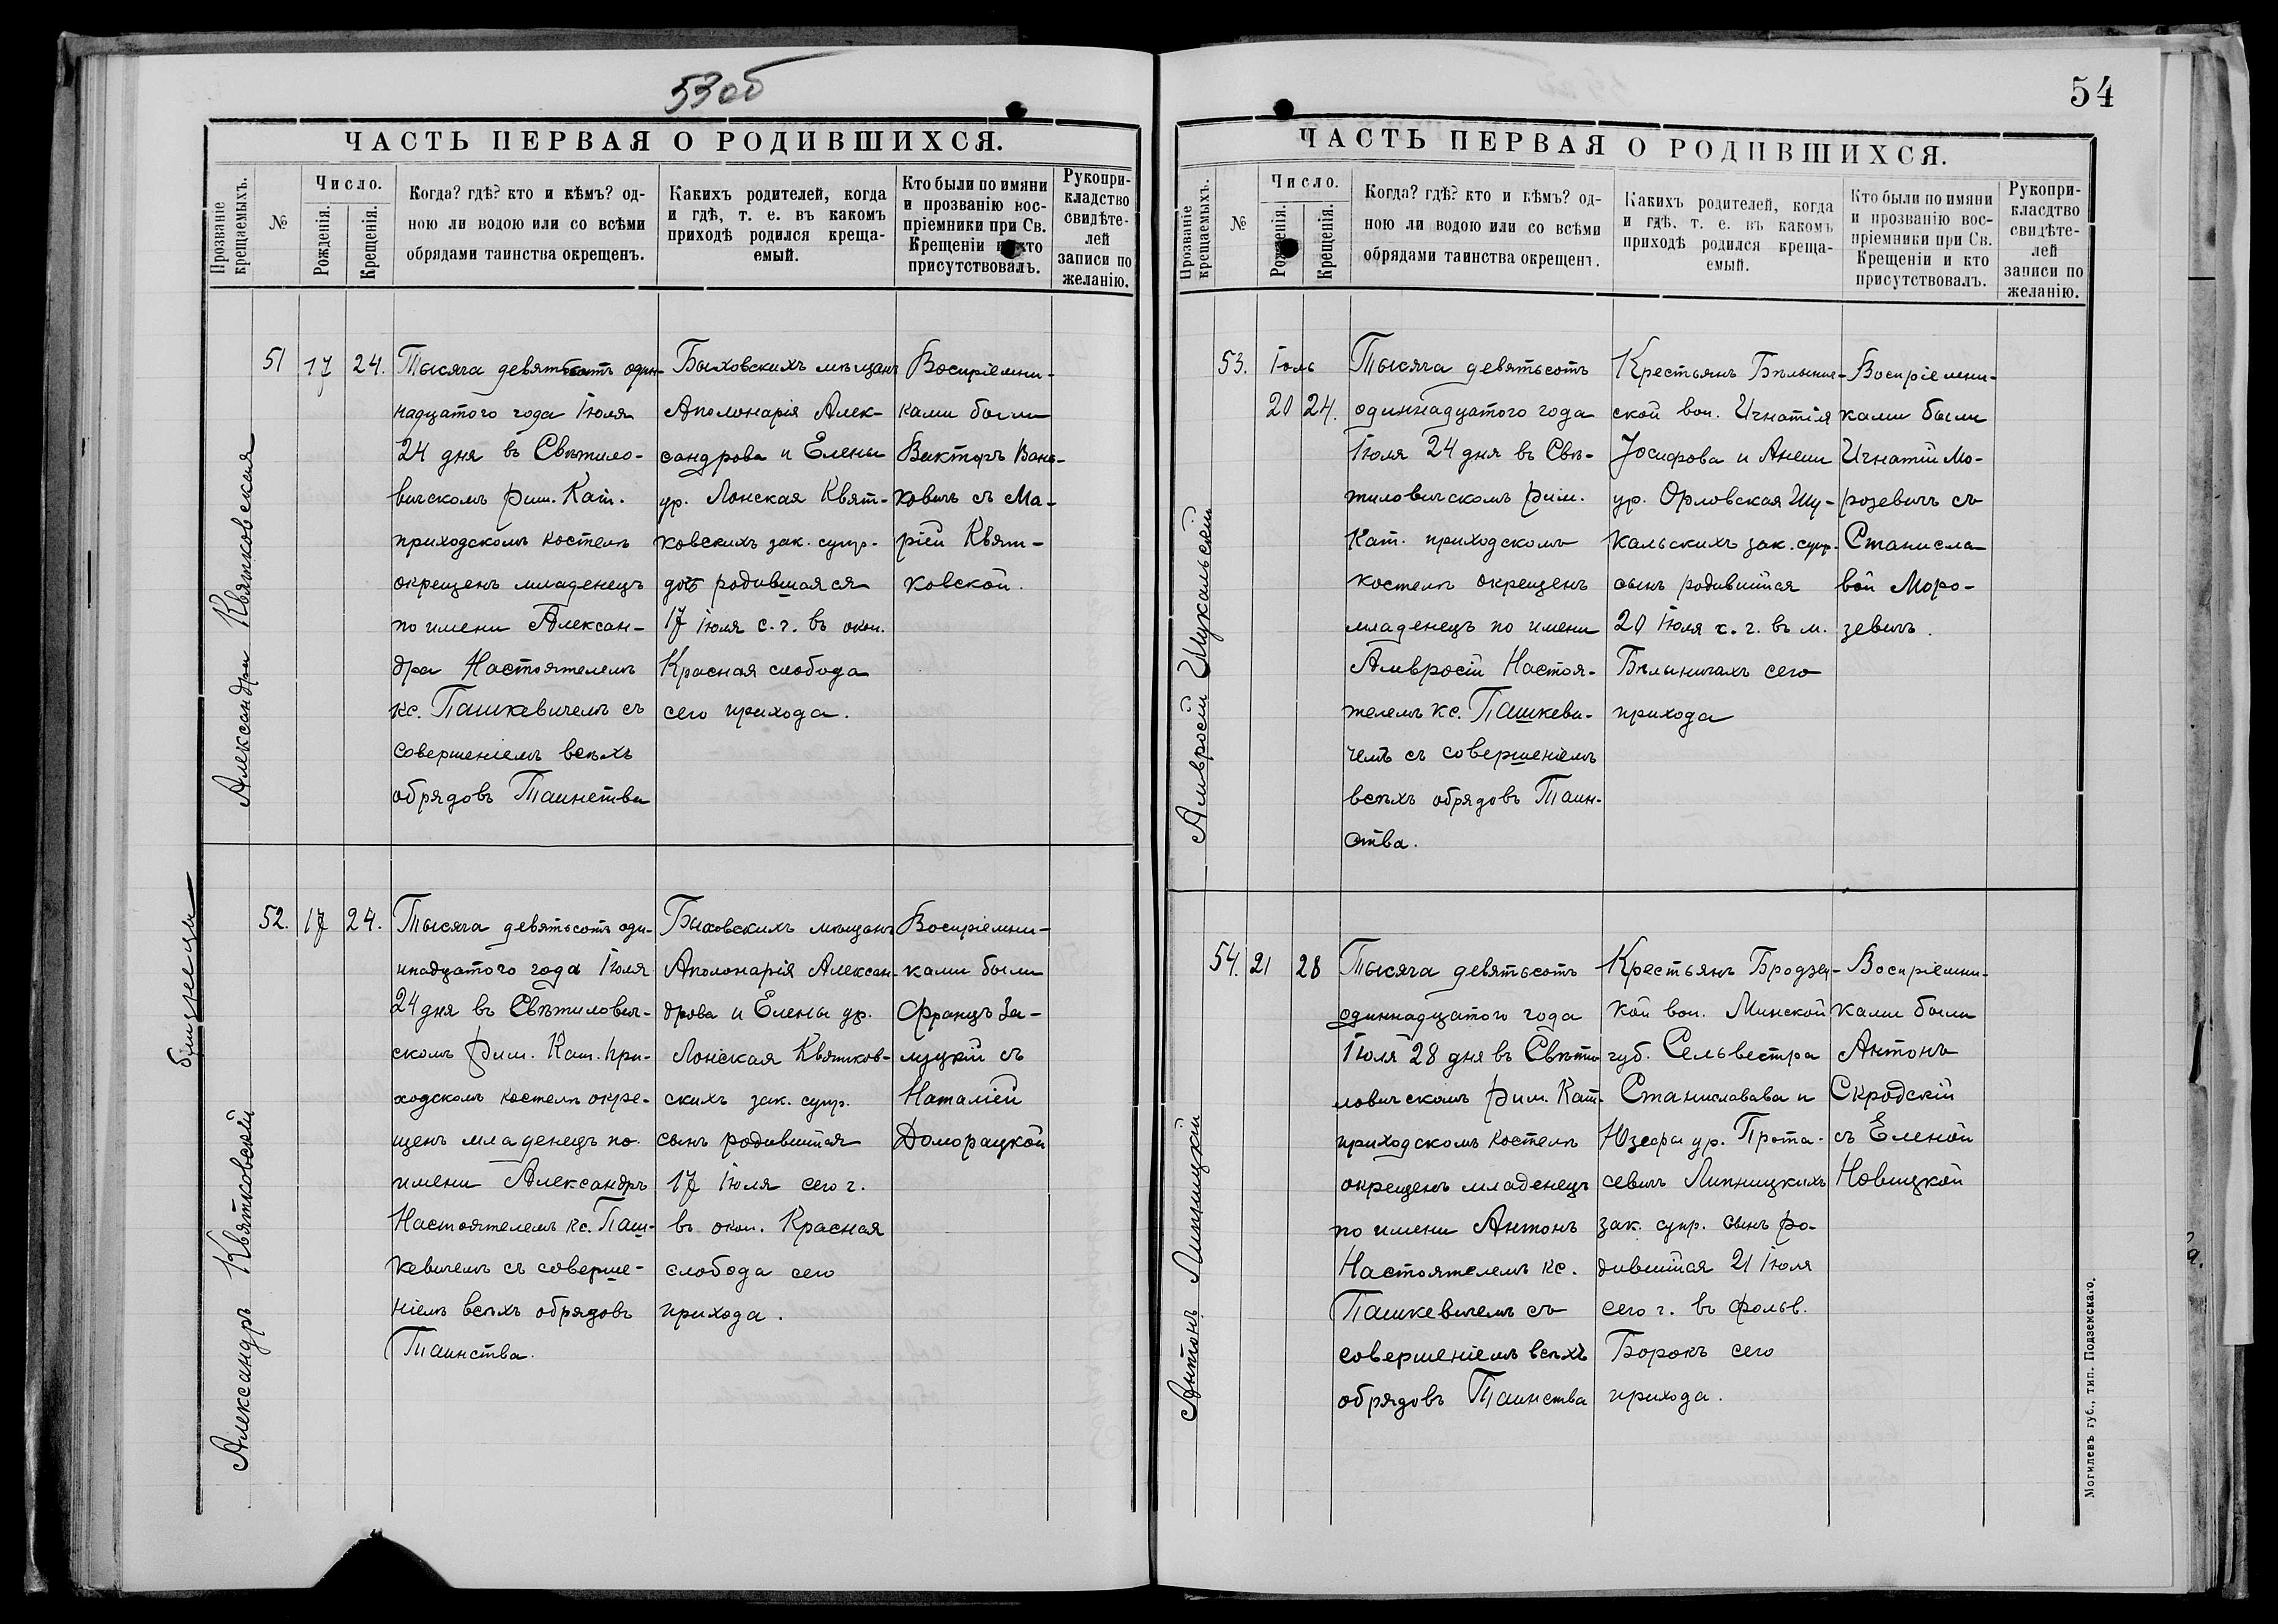 53об
ЧАСТЬ ПЕРВАЯ О РОДИВШИХСЯ.
Прозваніе крещаемыхъ.
№
Число.
Рожденія.
Крещенія.
Когда? гдѣ? кто и кѣмъ? од-
ною ли водою или со всѣми
обрядами таинства окрещенъ.
Какихъ родителей, когда
и гдѣ, т. е. въ какомъ
приходѣ родился креща-
емый.
Кто были по имяни
и прозванію вос-
пріемники при Св.
Крещеніи и кто
присутствовалъ.
Рукопри-
кладство
свидѣте-
лей
записи по
желанію.
близнецы
Александра Квятковская
51
17
24.
Тысяча девятьсотъ один-
надцатого года Іюля
24 дня въ Свѣтило-
вичскомъ Рим. Кат.
приходскомъ костелѣ
окрещенъ младенецъ
по имени Алексан-
дра Настоятелемъ
кс. Пашкевичемъ съ
совершеніемъ всѣхъ
обрядовъ Таинства
Быховскихъ мѣщанъ
Аполонарія Алек-
сандрова и Елены
ур. Лонская Квят-
ковскихъ зак. супр.
дочь родившаяся
17 Іюля с. г. въ окол.
Красная слобода
сего прихода.
Воспріемни-
ками были
Викторъ Вань-
ковичъ съ Ма-
ріей Квят-
ковской.
Александръ Квятковскій
52.
17
24.
Тысяча девятьсотъ оди-
ннадцатого года Іюля
24 дня въ Свѣтилович-
скомъ Рим. Кат. при-
ходскомъ костелѣ окре-
щенъ младенецъ по
имени Александръ
Настоятелемъ кс. Паш-
кевичемъ съ соверше-
ніемъ всѣхъ обрядовъ
Таинства.
Быховскихъ мѣщанъ
Аполонарія Алексан-
дрова и Елены ур.
Лонская Квятков-
скихъ зак. супр.
сынъ родившійся
17 Іюля сего г.
въ окол. Красная
слобода сего
прихода.
Воспріемни-
ками были
Францъ За-
луцкій съ
Наталіей
Доморацкой
54
ЧАСТЬ ПЕРВАЯ О РОДИВШИХСЯ.
Прозваніе крещаемыхъ.
№
Число.
Рожденія.
Крещенія.
Когда? гдѣ? кто и кѣмъ? од-
ною ли водою или со всѣми
обрядами таинства окрещенъ.
Какихъ родителей, когда
и гдѣ, т. е. въ какомъ
приходѣ родился креща-
емый.
Кто были по имяни
и прозванію вос-
пріемники при Св.
Крещеніи и кто
присутствовалъ.
Рукопри-
класдтво
свидѣте-
лей
записи по
желанію.
Амвросій Шукальскій
53.
Іюль
20
24.
Тысяча девятьсотъ
одиннадцатого года
Іюля 24 дня въ Свѣ-
тиловичскомъ Рим.
Кат. приходскомъ
костелѣ окрещенъ
младенецъ по имени
Амвросій Настоя-
телемъ кс. Пашкеви-
чемъ съ совершеніемъ
всѣхъ обрядовъ Таин-
ства.
Крестьянъ Бѣлынич-
ской вол. Игнатія
Іосифова и Анели
ур. Орловская Шу-
кальскихъ зак. супр.
сынъ родившійся
20 Іюля с. г. въ м.
Бѣлыничахъ сего
прихода
Воспріемни-
ками были
Игнатій Мо-
розевичъ съ
Станисла
вой Моро-
зевичъ.
Антонъ Липницкій
54.
21
28
Тысяча девятьсотъ
одиннадцатого года
Іюля 28 дня въ Свѣти
ловичскомъ Рим. Кат.
приходскомъ костелѣ
окрещенъ младенецъ
по имени Антонъ
Настоятелемъ кс.
Пашкевичемъ съ
совершеніемъ всѣхъ
обрядовъ Таинства
Крестьянъ Бродзец-
кой вол. Минской
губ. Сельвестра
Станиславава и
Юзефы ур. Прота-
севичъ Липницкихъ
зак. супр. сынъ ро-
дившійся 21 Іюля
сего г. въ фольв.
Борокъ сего
прихода.
Воспріемни-
ками были
Антонъ
Скродскій
съ Еленой
Новицкой
Могилевъ губ., тип. Подземскаго.